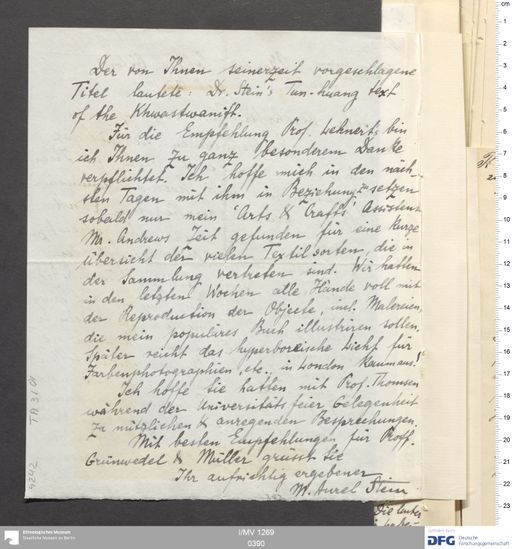 Der von Ihnen seinerzeit vorgeschlagene
Titel lautete: Dr. Stein's Tun-huang text
of the Khwastwanift.
Für die Empfehlung Prof. Lehnerts bin
ich Ihnen zu ganz besonderem Danke
verpflichtet. Ich hoffe mich in den näch-
sten Tagen mit ihm in Beziehung zu setzen
sobald nur mein 'Arts & Crafts' Assistent
Mr. Andrews Zeit gefunden für eine kurze
Übersicht der vielen Textilsorten, die in
der Sammlung vertreten sind. Wir hatten
in den letzten Wochen alle Hände voll mit
der Reproduction der Objecte, incl. Malereien,
die mein populäres Buch illustriren sollen.
Später reicht das hyperboreische Licht für
Farbenphotographien, etc., in London kaum aus!
Ich hoffe Sie hatten mit Prof. Thomsen
während der Universitätsfeier Gelegenheit
zu nützlichen & anregenden Besprechungen.
Mit besten Empfehlungen für Proff.
Grünwedel & Müller grüsst Sie
Ihr aufrichtig ergebener
M. Aurel Stein
TA 3101
4242
Ethnologisches Museum
Staatliche Museen zu Berlin
I/MV 1269
0390
gefördert durch
DFG Deutsche
Forschungsgemeinschaft
cm
1
2
3
4
5
6
7
8
9
10
11
12
13
14
15
16
17
18
19
20
21
22
23